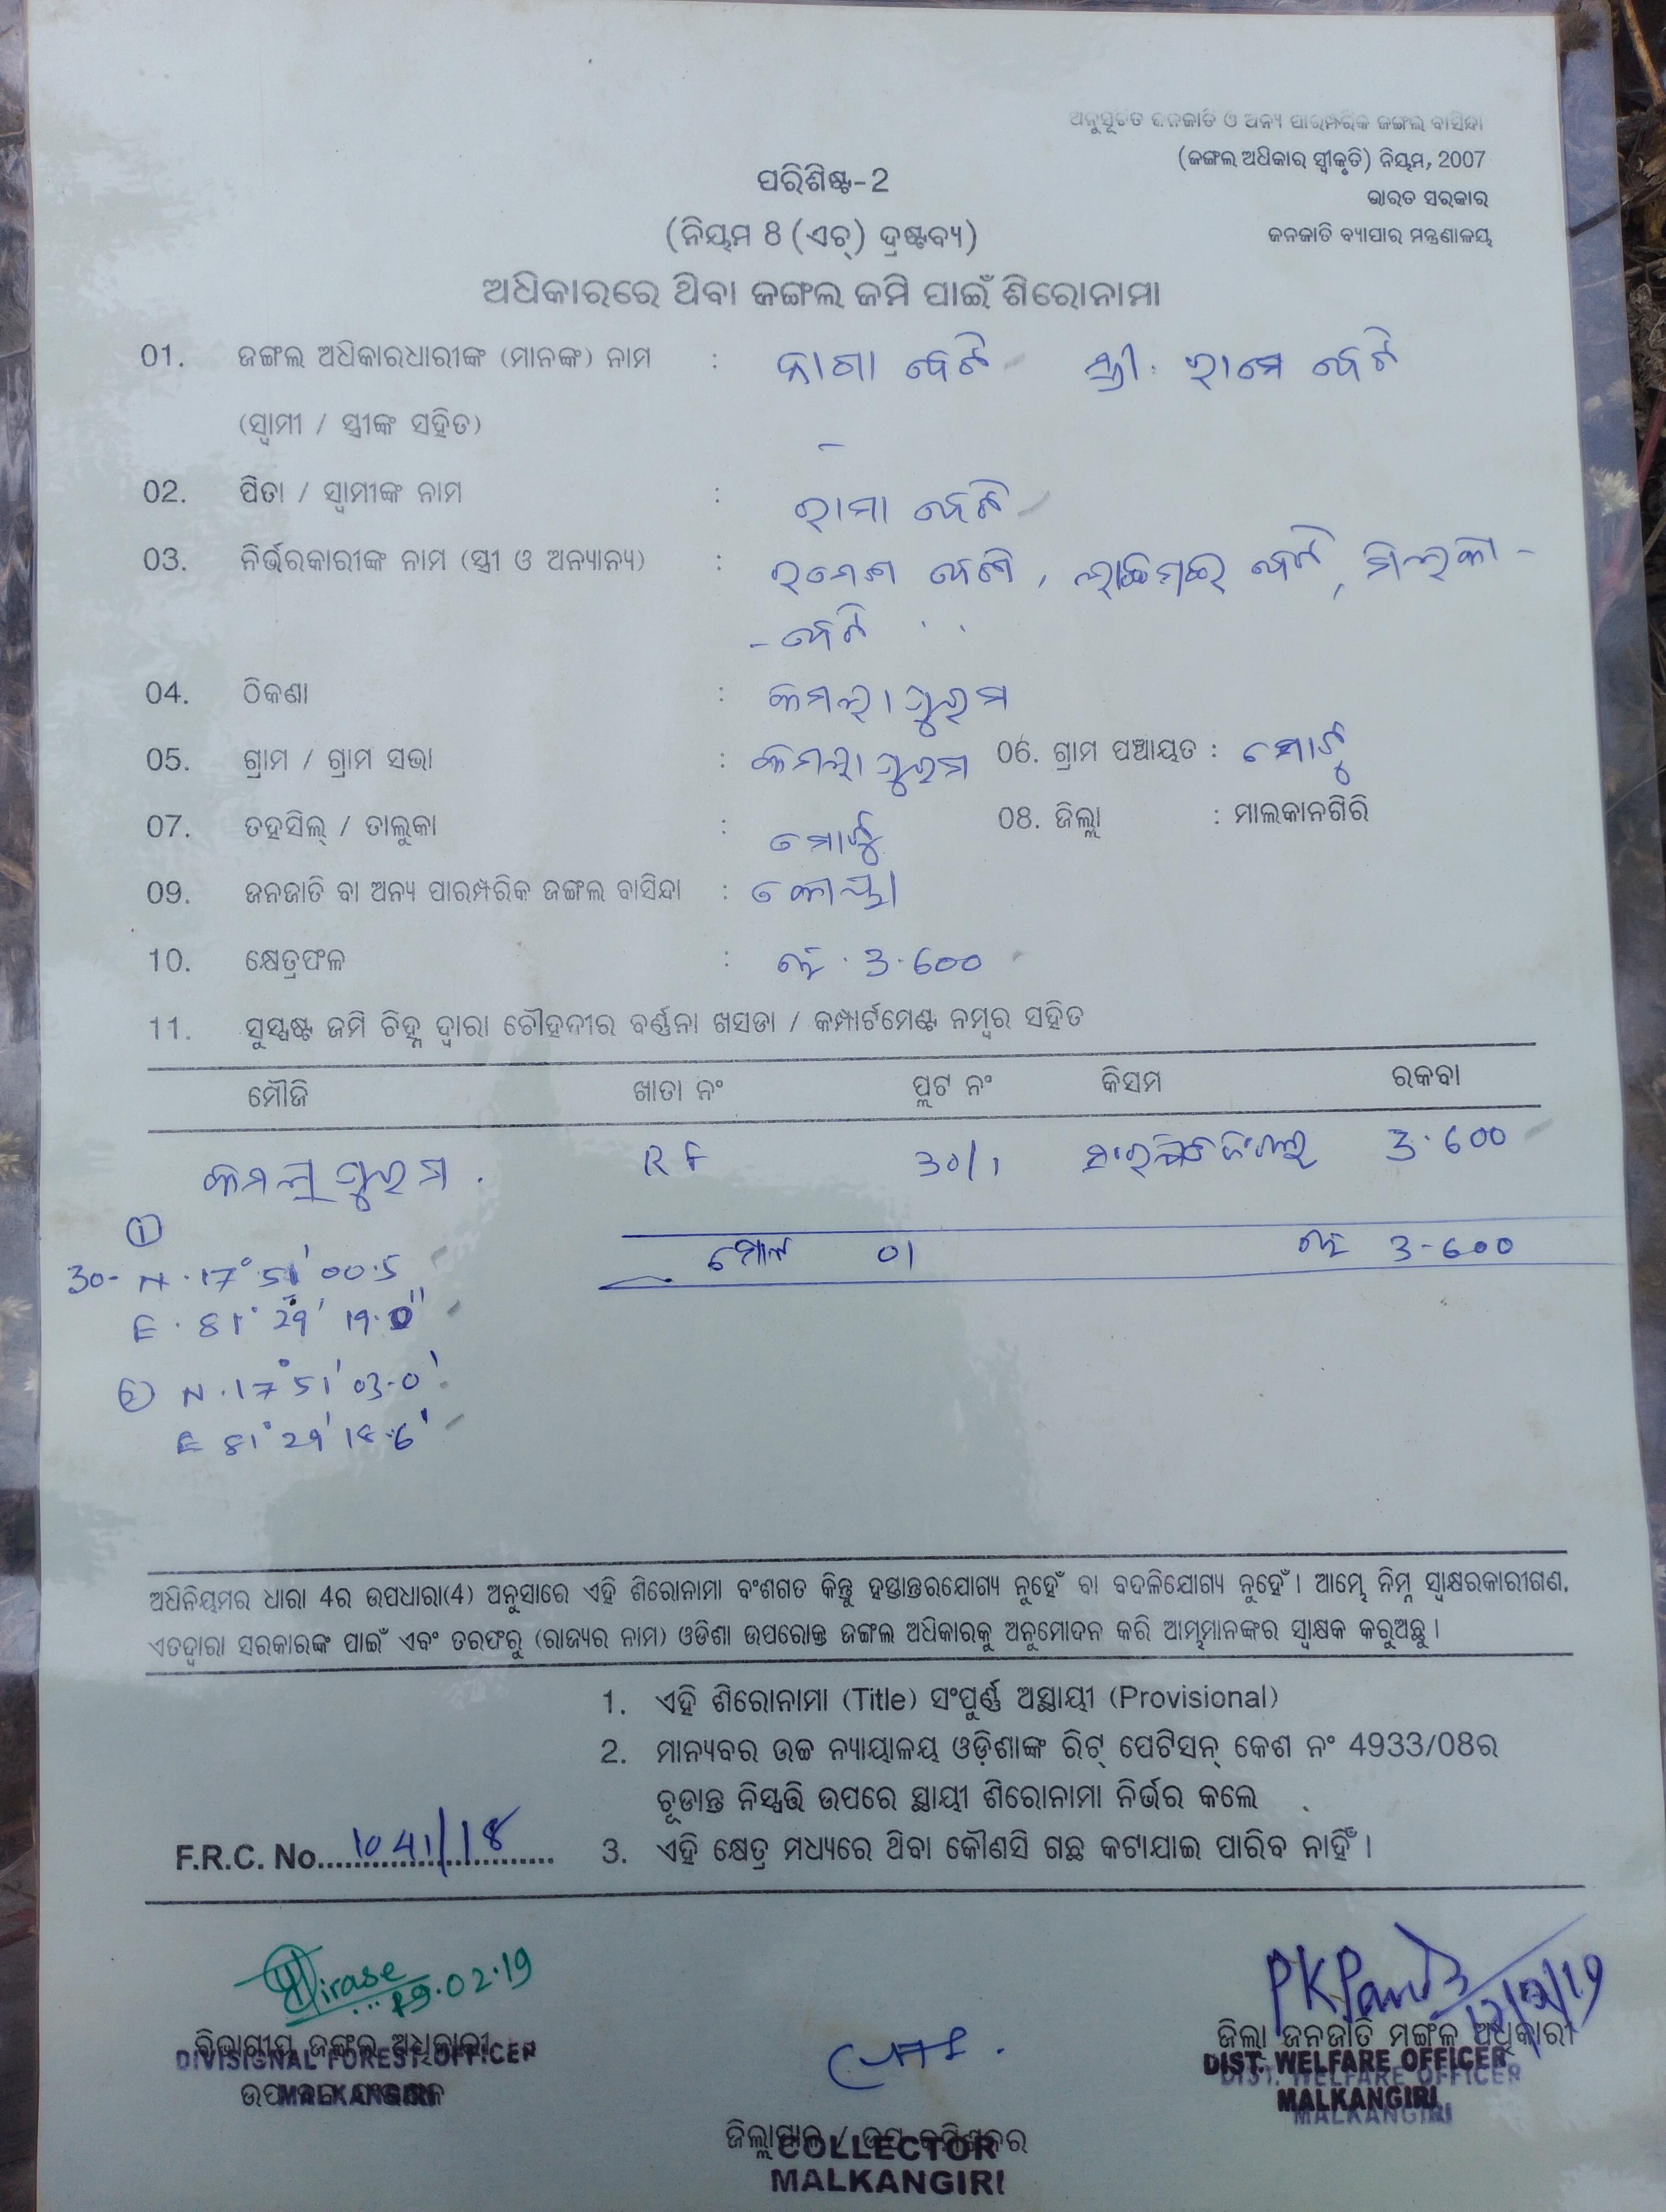 ଅନୁସୂଚିତ ଜନଜାତି ଓ ଅନ୍ୟ ପାରମ୍ପରିକ ଜଙ୍ଗଲ ବାସିନ୍ଦା
(ଜଙ୍ଗଲ ଅଧିକାର ସ୍ୱୀକୃତି) ନିୟମ, 2007
ଭାରତ ସରକାର
ଜନଜାତି ବ୍ୟାପାର ମନ୍ତ୍ରଣାଳୟ
ପରିଶିଷ୍ଟ-2
(ନିୟମ 8 (ଏଚ୍) ଦ୍ରଷ୍ଟବ୍ୟ)
ଅଧିକାରରେ ଥିବା ଜଙ୍ଗଲ ଜମି ପାଇଁ ଶିରୋନାମା
01. ଜଙ୍ଗଲ ଅଧିକାରଧାରୀଙ୍କ (ମାନଙ୍କ) ନାମ :
(ସ୍ୱାମୀ / ସ୍ତ୍ରୀଙ୍କ ସହିତ)
02. ପିତା / ସ୍ୱାମୀଙ୍କ ନାମ :
03. ନିର୍ଭରକାରୀଙ୍କ ନାମ (ସ୍ତ୍ରୀ ଓ ଅନ୍ୟାନ୍ୟ) :
04. ଠିକଣା : କମଲାଗୁଇମ
05. ଗ୍ରାମ / ଗ୍ରାମ ସଭା : କମଲାଗୁଇମ 06. ଗ୍ରାମ ପଞ୍ଚାୟତ : ମୋଟୁ
07. ତହସିଲ୍ / ତାଲୁକା : ମୋଟୁ 08. ଜିଲ୍ଲା : ମାଲକାନଗିରି
09. ଜନଜାତି ବା ଅନ୍ୟ ପାରମ୍ପରିକ ଜଙ୍ଗଲ ବାସିନ୍ଦା : କୋୟା
10. କ୍ଷେତ୍ରଫଳ : 3.600
11. ସୁସ୍ପଷ୍ଟ ଜମି ଚିହ୍ନ ଦ୍ୱାରା ଚୌହଦୀର ବର୍ଣ୍ଣନା ଖସଡା / କମ୍ପାର୍ଟମେଣ୍ଟ ନମ୍ବର ସହିତ
ମୌଜି ଖାତା ନଂ ପ୍ଲଟ ନଂ କିସମ ରକବା
କମଲାଗୁଇମ. RF 30/1 3.600
ମୋଟ 01 3-600
①
30- N.17° 51' 00.5
E. 81° 29' 19.0"
② N.17° 51' 03.0'
E 81° 29' 18.6'
ଅଧିନିୟମର ଧାରା 4ର ଉପଧାରା(4) ଅନୁସାରେ ଏହି ଶିରୋନାମା ବଂଶଗତ କିନ୍ତୁ ହସ୍ତାନ୍ତରଯୋଗ୍ୟ ନୁହେଁ ବା ବଦଳିଯୋଗ୍ୟ ନୁହେଁ । ଆମ୍ଭେ ନିମ୍ନ ସ୍ୱାକ୍ଷରକାରୀଗଣ,
ଏତଦ୍ୱାରା ସରକାରଙ୍କ ପାଇଁ ଏବଂ ତରଫରୁ (ରାଜ୍ୟର ନାମ) ଓଡିଶା ଉପରୋକ୍ତ ଜଙ୍ଗଲ ଅଧିକାରକୁ ଅନୁମୋଦନ କରି ଆମ୍ଭମାନଙ୍କର ସ୍ୱାକ୍ଷକ କରୁଅଛୁ ।
1. ଏହି ଶିରୋନାମା (Title) ସଂପୁର୍ଣ୍ଣ ଅସ୍ଥାୟୀ (Provisional)
2. ମାନ୍ୟବର ଉଚ୍ଚ ନ୍ୟାୟାଳୟ ଓଡ଼ିଶାଙ୍କ ରିଟ୍ ପେଟିସନ୍ କେଶ ନଂ 4933/08ର
ଚୂଡାନ୍ତ ନିସ୍ପତ୍ତି ଉପରେ ସ୍ଥାୟୀ ଶିରୋନାମା ନିର୍ଭର କଲେ
F.R.C. No. 1041/18
3. ଏହି କ୍ଷେତ୍ର ମଧ୍ୟରେ ଥିବା କୌଣସି ଗଛ କଟାଯାଇ ପାରିବ ନାହିଁ ।
19.02.19
PKPanda
ବିଭାଗୀୟ ଜଙ୍ଗଲ ଅଧିକାରୀ
DIVISIONAL FOREST OFFICER
MALKANGIRI
ଜିଲ୍ଲା ଜନଜାତି ମଙ୍ଗଳ ଅଧିକାରୀ
DIST. WELFARE OFFICER
MALKANGIRI
ଜିଲ୍ଲାପାଳ /
COLLECTOR
MALKANGIRI